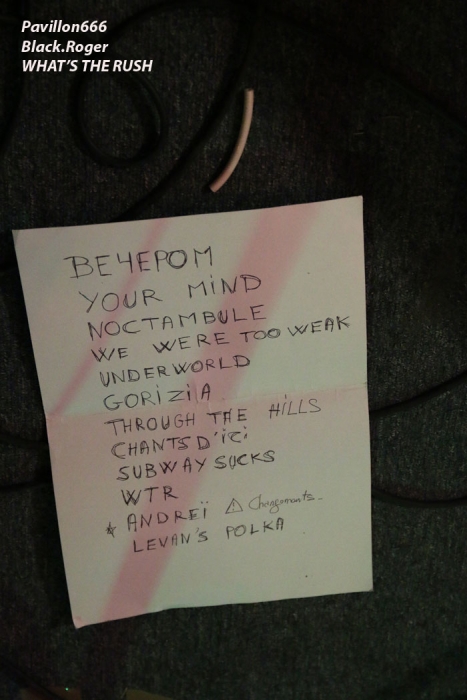 Pavillon666
Black.Roger
WHAT'S THE RUSH
ВЕЧЕРОМ
YOUR MIND
NOCTAMBULE
WE WERE TOO WEAK
UNDERWORLD
GORIZIA
THROUGH THE HILLS
CHANTS D'ICI
SUBWAY SUCKS
WTR
* ANDREÏ ⚠ Changements
LEVAN'S POLKA